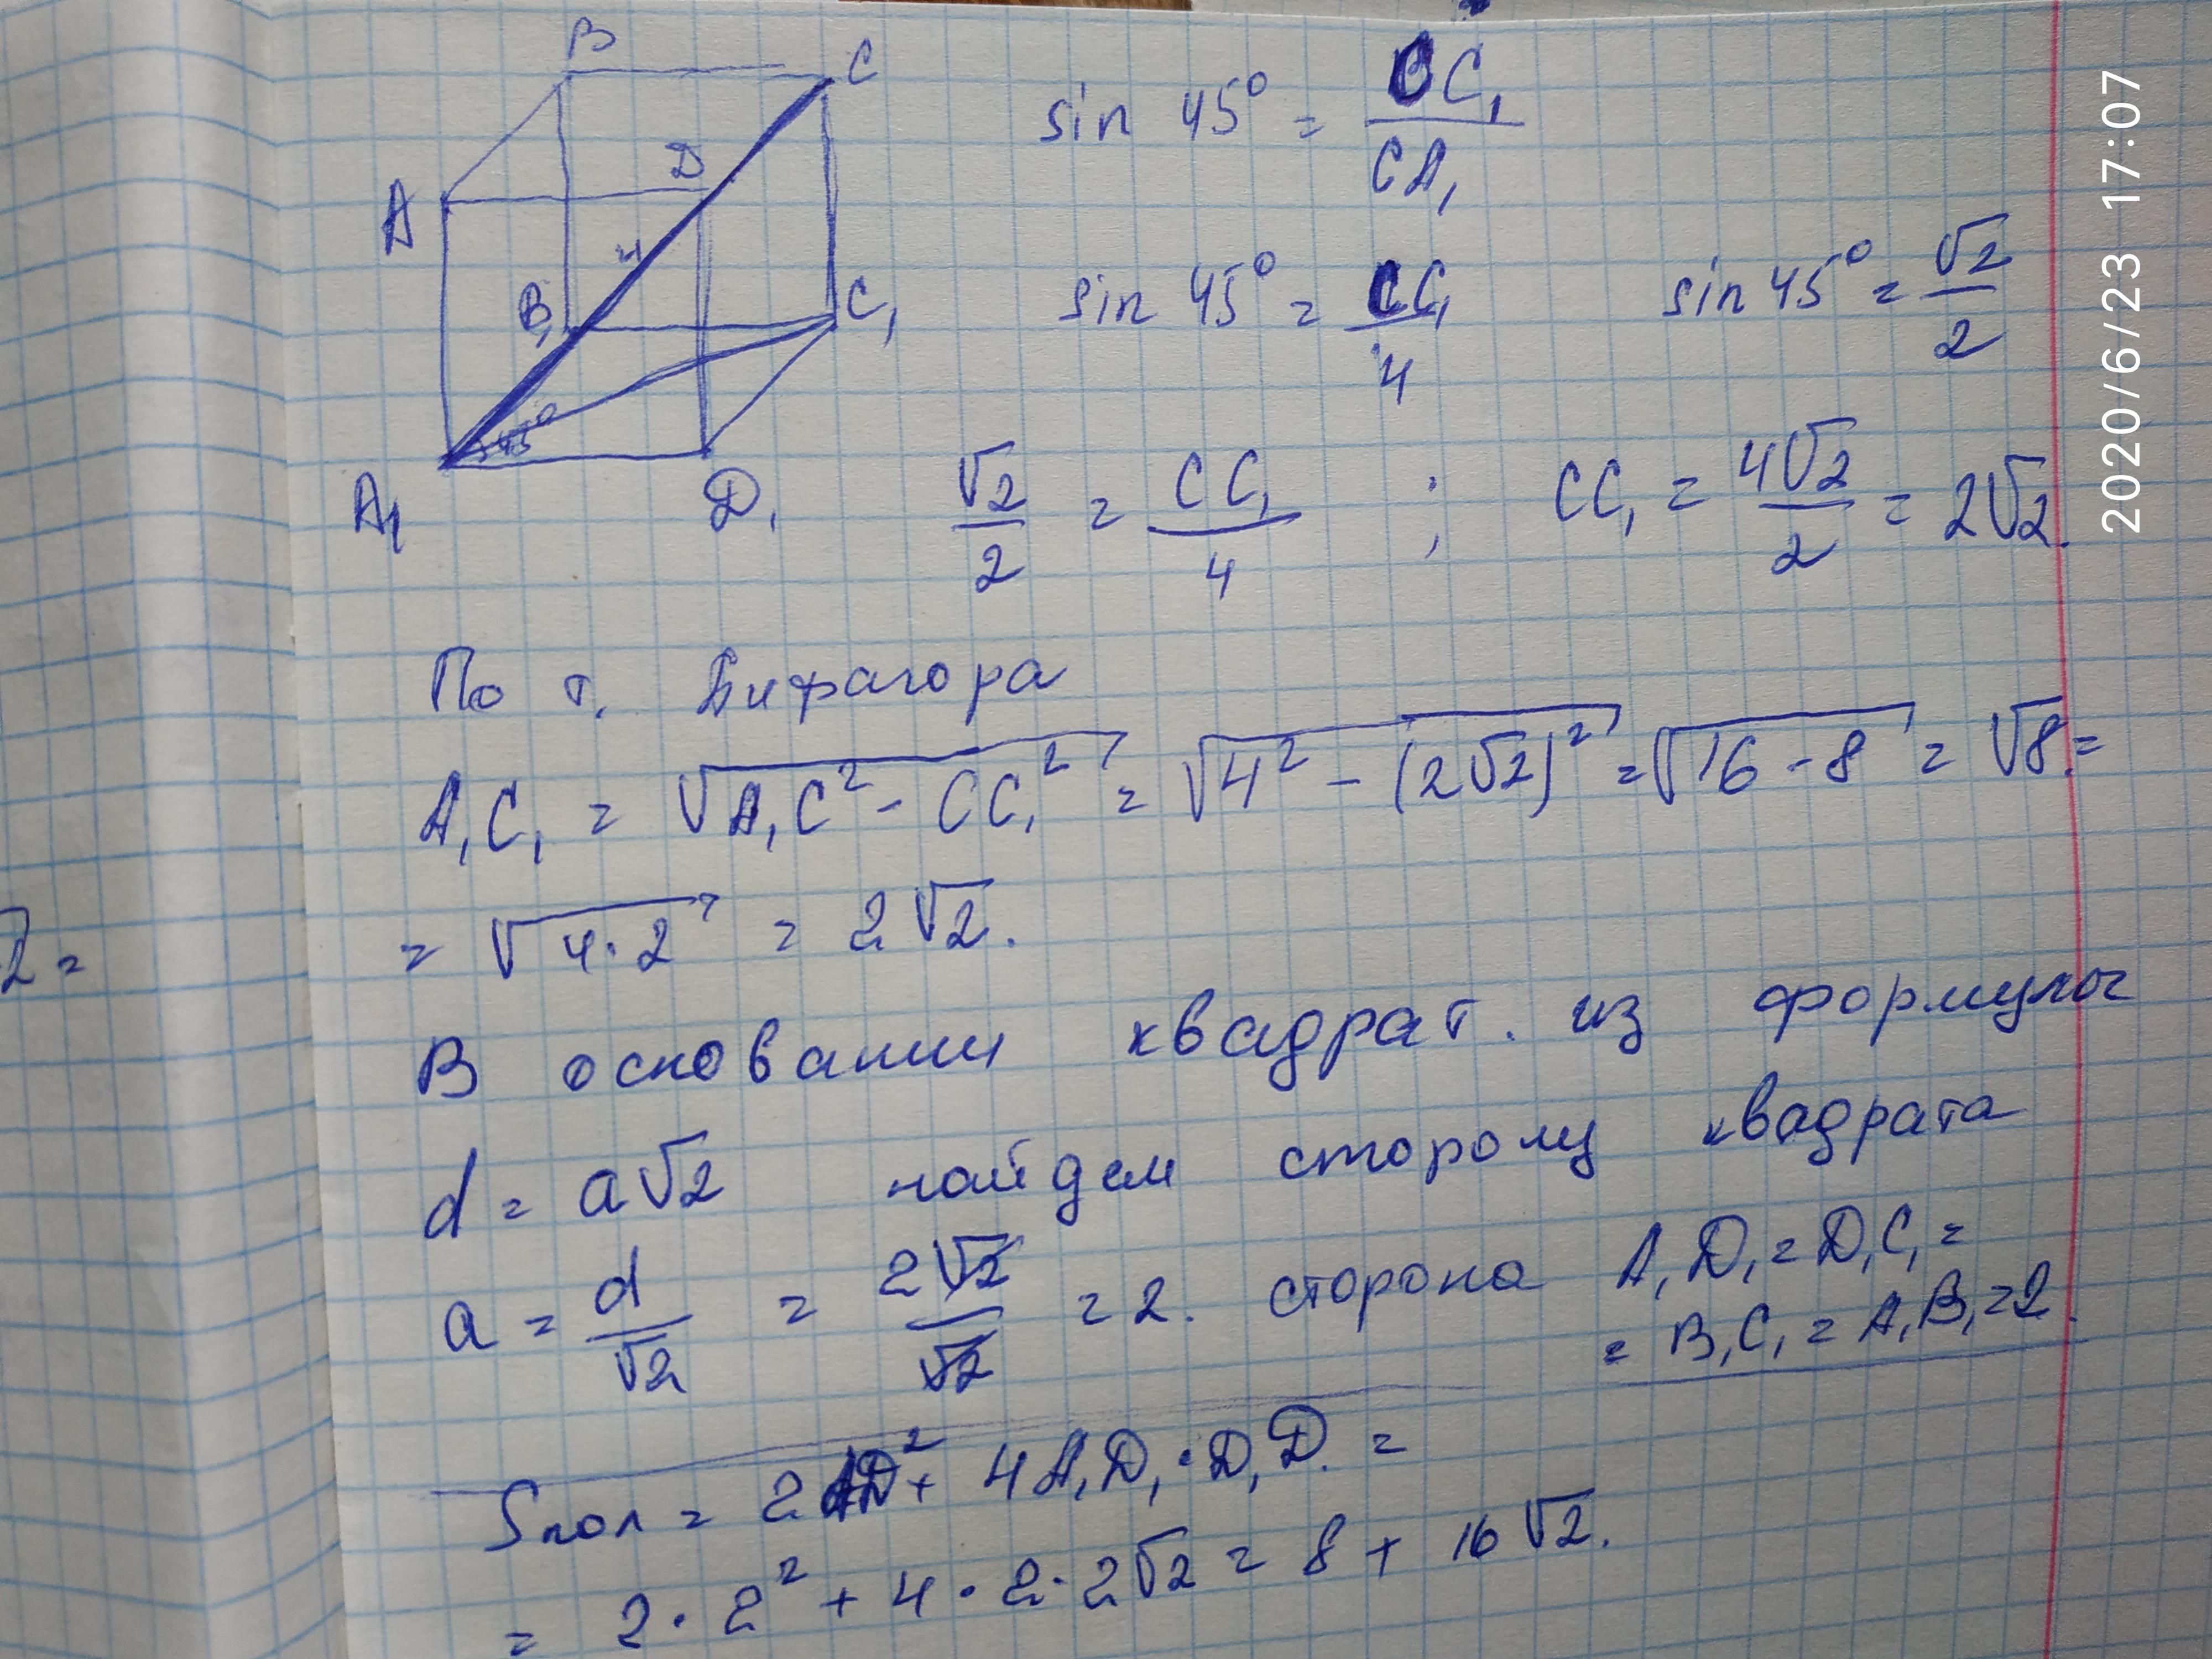 B
C
A
D
4
B₁
C₁
45°
A₁
D₁
sin 45° = CC₁/CA₁
sin 45° = CC₁/4
sin 45° = √2/2
√2/2 = CC₁/4 ; CC₁ = 4√2/2 = 2√2.
По т. Пифагора
A₁C₁ = √(A₁C² - CC₁²) = √(4² - (2√2)²) = √(16 - 8) = √8 =
= √(4·2) = 2√2.
В основании квадрат. из формулы
d = a√2 найдем сторону квадрата
a = d/√2 = 2√2/√2 = 2. сторона A₁D₁ = D₁C₁ =
= B₁C₁ = A₁B₁ = 2.
Sпол = 2AD² + 4A₁D₁·D₁D. =
= 2·2² + 4·2·2√2 = 8 + 16√2.
2 =
2020/6/23 17:07